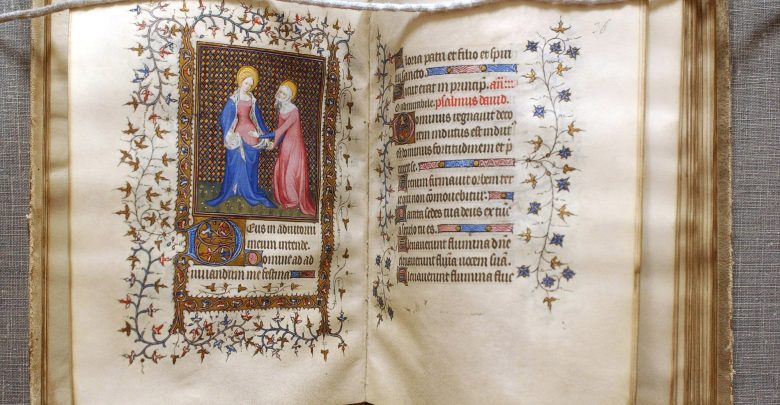 36
Deus in adiutoriu
meum intende
Domine ad ad
iuuandum me festina
Gloria patri et filio et spiri
sancto
Sicut erat in princip. an
admirabile. psalmus dauid.
Dominus regnauit deco
rem indutus est indut
dominus fortitudinem et p
Etenim firmauit orbem ter
non commouebitur
Parata sedes tua deus ex tuc
a seculo tu es
Eleuauerunt flumina dne
eleuauerunt flumina uocem sua
Eleuauerunt flumina fluc